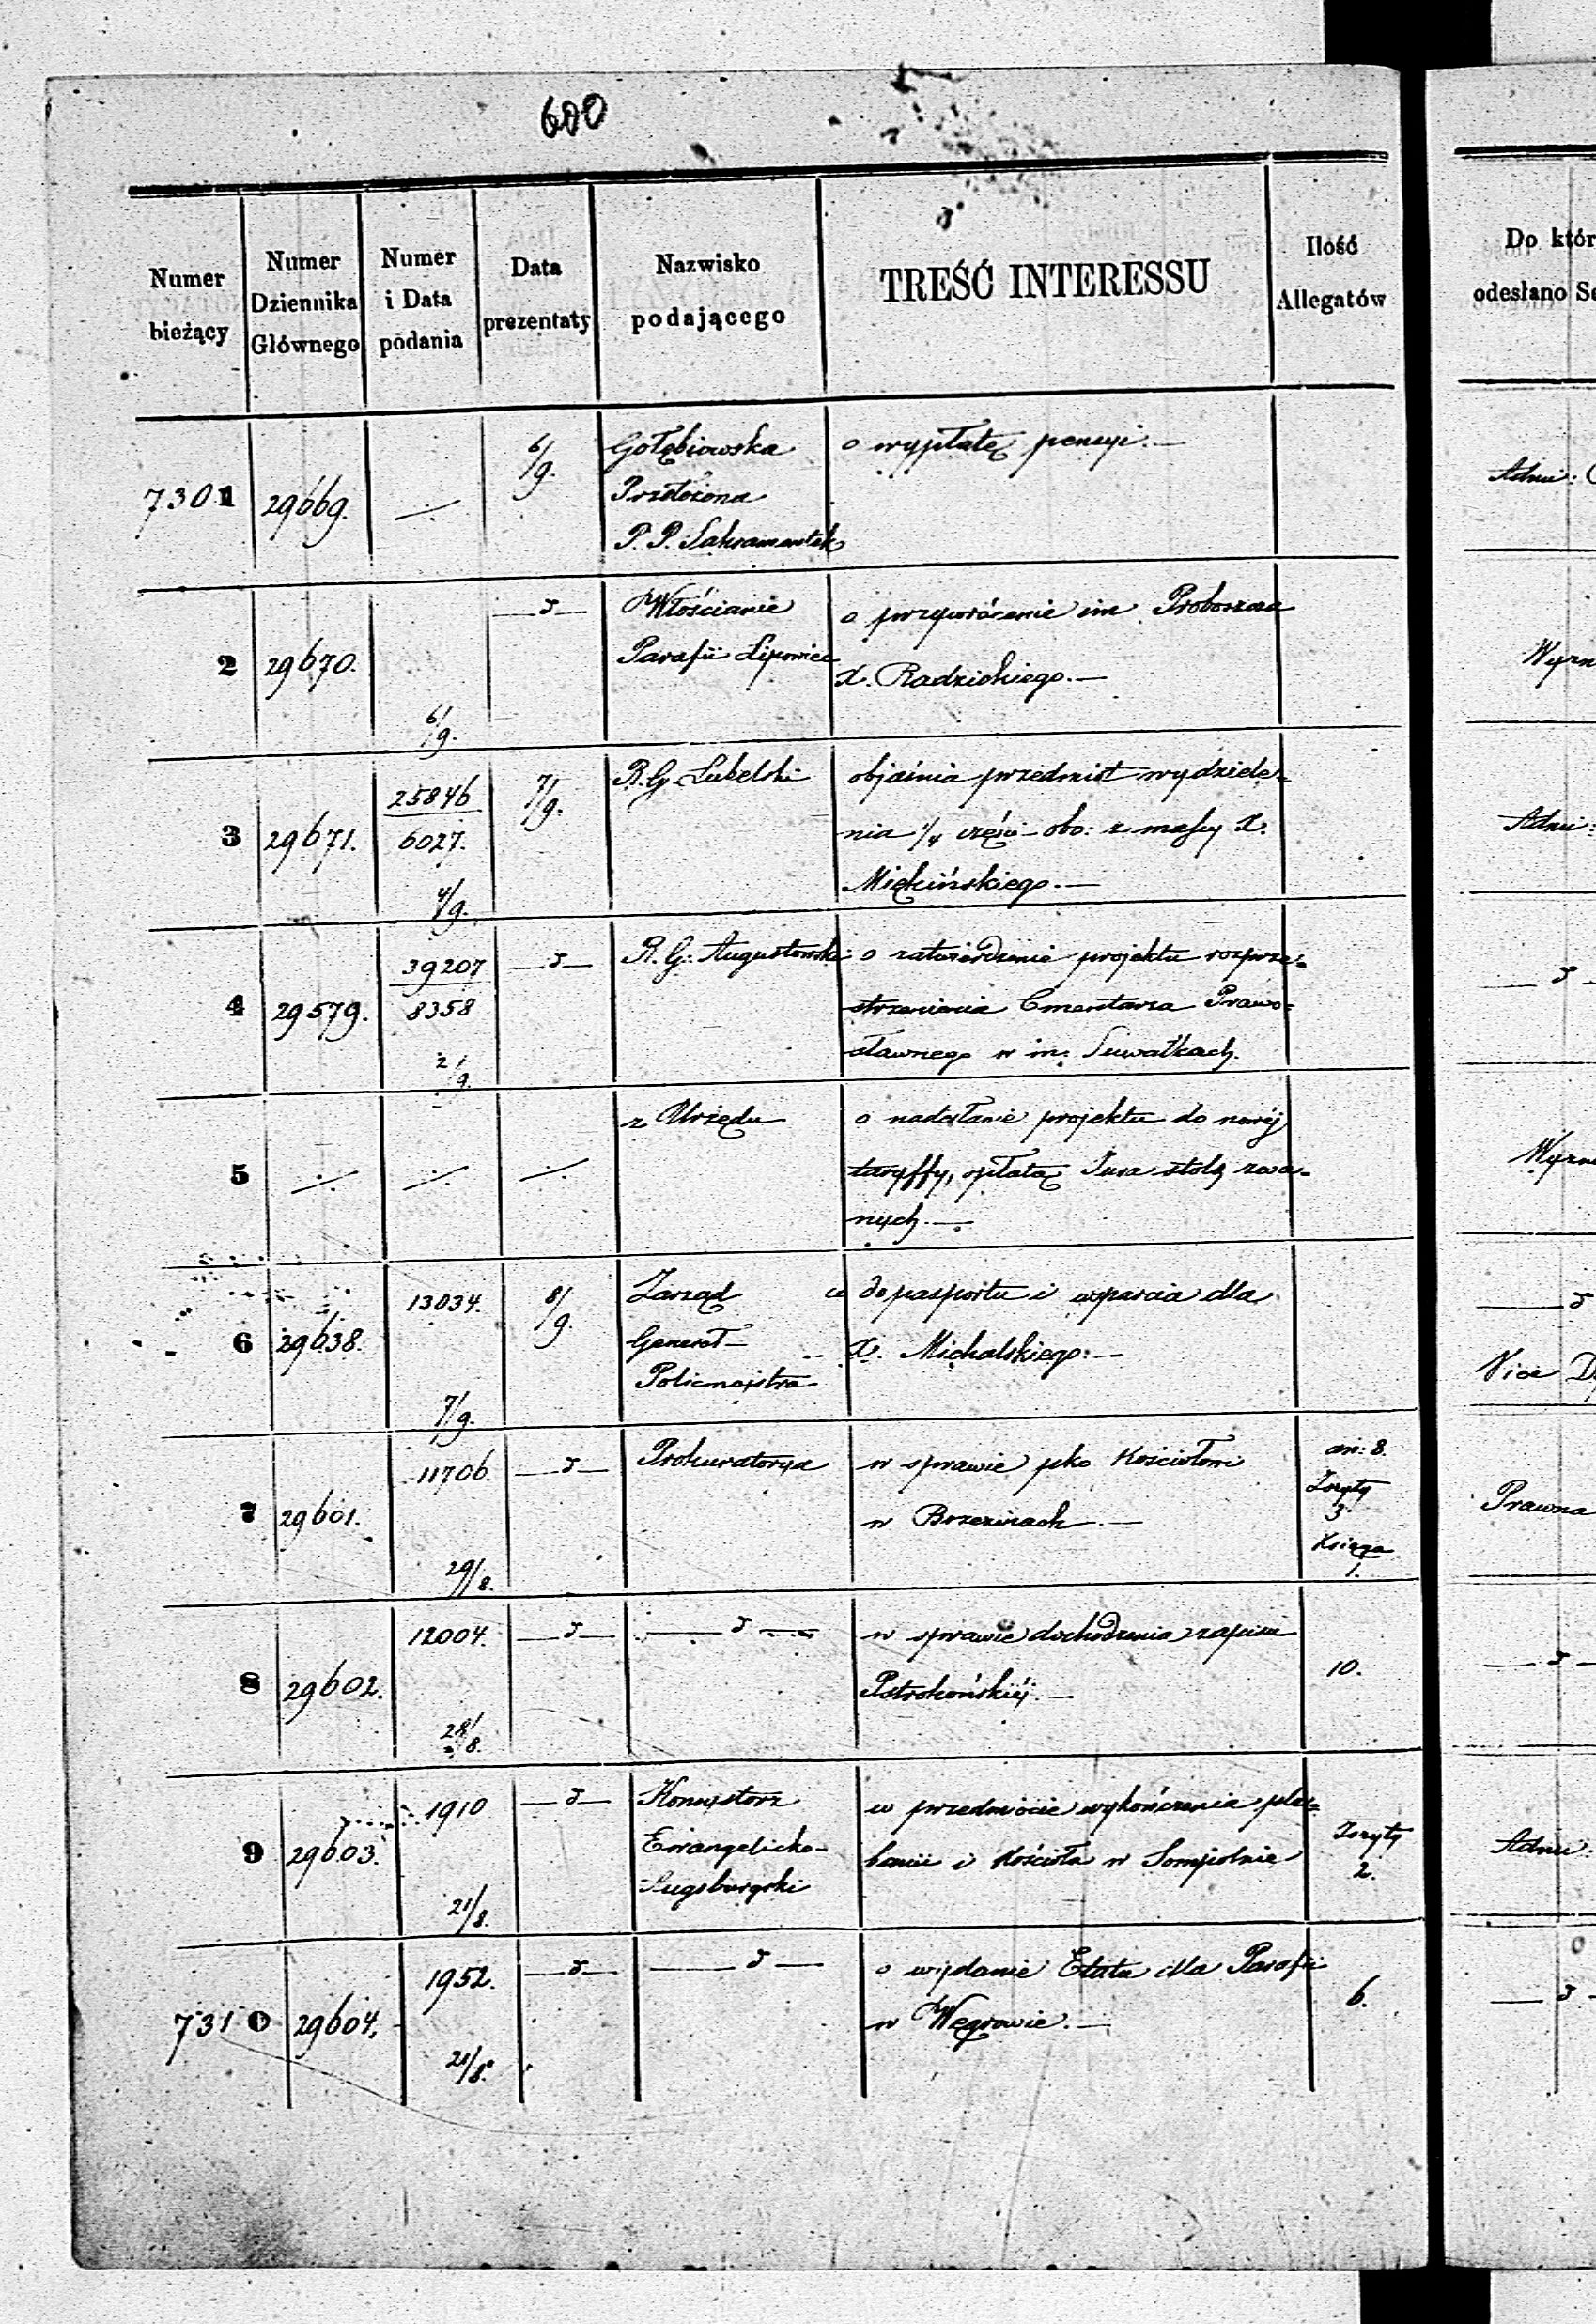 600
Numer bieżący
Numer Dziennika Głównego
Numer i Data podania
Data prezentaty
Nazwisko podającego
TREŚĆ INTERESSU
Ilość Allegatów
Do któr
odesłano Se
7301 29669. ./. 6/9. Gołębiowska o wypłatę pensyi.—
Przełożona
P. P. Sakramentek
Adm:
2 29670. 6/9. —d— Włościanie o przywrócenie im Proboszcza
Parafii Lipowiec X. Radzickiego.—
3 29671. 25846
6027. 4/9. 7/9. R. G. Lubelski objaśnia przedmiot wydziele=
nia 1/4 części obo: z massy X.
Mięckińskiego.—
Adm:
4 29579. 39207
8358 2/9. —d— R. G. Augustowski o zatwierdzenie projektu rozprze=
strzenienia Cmentarza Prawo=
sławnego w m. Suwałkach.
—d—
5 ./. ./. ./. z Urzędu o nadesłanie projektu do nowéj
taryffy, opłatą Jura stolę zwa=
nych.—
6 29638. 13034. 7/9. 8/9. Zarząd co do pasportu i wsparcia dla
Generał— X. Michalskiego.—
Policmajstra—
—d
Vice D
7 29601. 11706. 29/8. —d— Prokuratorya w sprawie pko Kościołowi
w Brzezinach.—
an: 8.
Zeszyty
3.
Księga
1.
Prawna
8 29602. 12004. 28/8. —d— —d— w sprawie dochodzenia zapisu
Pstrokońskiéj.—
10.
—d—
9 29603. 1910 21/8. —d— Konsystorz w przedmiocie wykończenia ple=
Ewangelicko— banii i Kościoła w Sompolnie
Augsburgski
Zeszyty
2.
Adm:
7310 29604. 1952. 21/8. —d— —d— o wydanie Etatu dla Parafii
w Węgrowie.—
6.
—d—